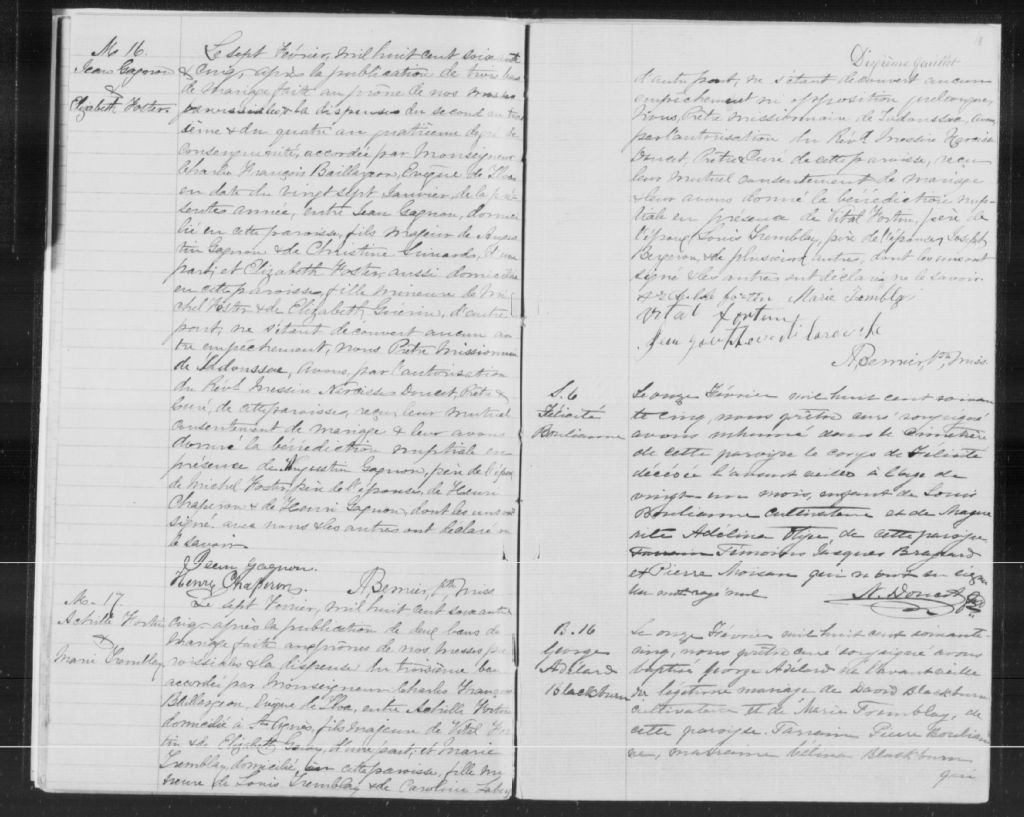 M. 16.
Jean Gagnon
&
Elizabeth Foster
Le sept Février, mil huit cent soixante
& cinq, après la publication de trois bans
de mariage faite au prône de nos messes
paroissiales & la dispense du second au troi
sième & du quatre au quatrième degré de
consanguinité, accordée par Monseigneur
Charles François Baillargeon, Evêque de Tloa
en date du vingt sept Janvier, de la pré
sente année, entre Jean Gagnon, domici
lié en cette paroisse, fils majeur de Augus
tin Gagnon & de Christine Simard, d'une
part; et Elizabeth Foster, aussi domiciliée
en cette paroisse, fille mineure de Mi
chel Foster & de Elizabeth Guérin, d'autre
part; ne s'étant découvert aucun au
tre empêchement, nous Prêtre Missionnaire
de Tadoussac, avons, par l'autorisation
du Révd. Messire Narcisse Doucet, Prêtre &
Curé, de cette paroisse, reçu leur mutuel
consentement de mariage & leur avons
donné la bénédiction nuptiale en
présence de Augustin Gagnon, père de l'époux
de Michel Foster, père de l'épouse, de Henri
Chaperon & de Henri Gagnon, dont les uns ont
signé avec nous & les autres ont déclaré ne
le savoir.
Jean Gagnon.
Henry Chaperon. A Bernier, Ptre, Miss
M. 17.
Achille Fortin
&
Marie Tremblay
Le sept Février, mil huit cent soixante
cinq, après la publication de deux bans de
mariage faite aux prônes de nos messes pa
roissiales & la dispense du troisième ban
accordée par Monseigneur Charles François
Baillargeon, Evêque de Tloa, entre Achille Fortin
domicilié à Ste Agnès, fils majeur de Vital For
tin & de Elizabeth, d'une part; et Marie
Tremblay, domiciliée, en cette paroisse, fille mi
neure de Louis Tremblay & de Caroline
Dixième feuillet
d'autre part, ne s'étant découvert aucun
empêchement ni opposition quelconque,
Nous, Prêtre Missionnaire de Tadoussac, avons
par l'autorisation du Révd. Messire Narcisse
Doucet, Prêtre & Curé de cette paroisse, reçu
leur mutuel consentement de mariage
& leur avons donné la bénédiction nup
tiale en présence de Vital Fortin, père de
l'époux, Louis Tremblay, père de l'épouse, Joseph
Bergeron, & de plusieurs autres, dont les uns ont
signé & les autres ont déclaré ne le savoir
fortin Marie Tremblay
Vital fortin
A Bernier, Ptre, Miss
S. 6
Félicité
Boulianne
Le onze Février mil huit cent soixan
te cinq, nous prêtre curé soussigné
avons inhumé dans le Cimetière
de cette paroisse le corps de Félicité
décédée l'avant veille à l'âge de
vingt un mois, enfant de Louis
Boulianne cultivateur et de Margue
rite Adélina, de cette paroisse
Témoins Jacques Brassard
et Pierre Moisan qui n'ont su signer
N. Doucet Ptre
B. 16
George
Adélard
Blackburn
Le onze Février mil huit cent soixante
cinq, nous prêtre curé soussigné avons
baptisé George Adélard né l'avant veille
du légitime mariage de David Blackburn
cultivateur et de Marie Tremblay, de
cette paroisse. Parrain Pierre Boulian
ne, marraine Blackburn
qui